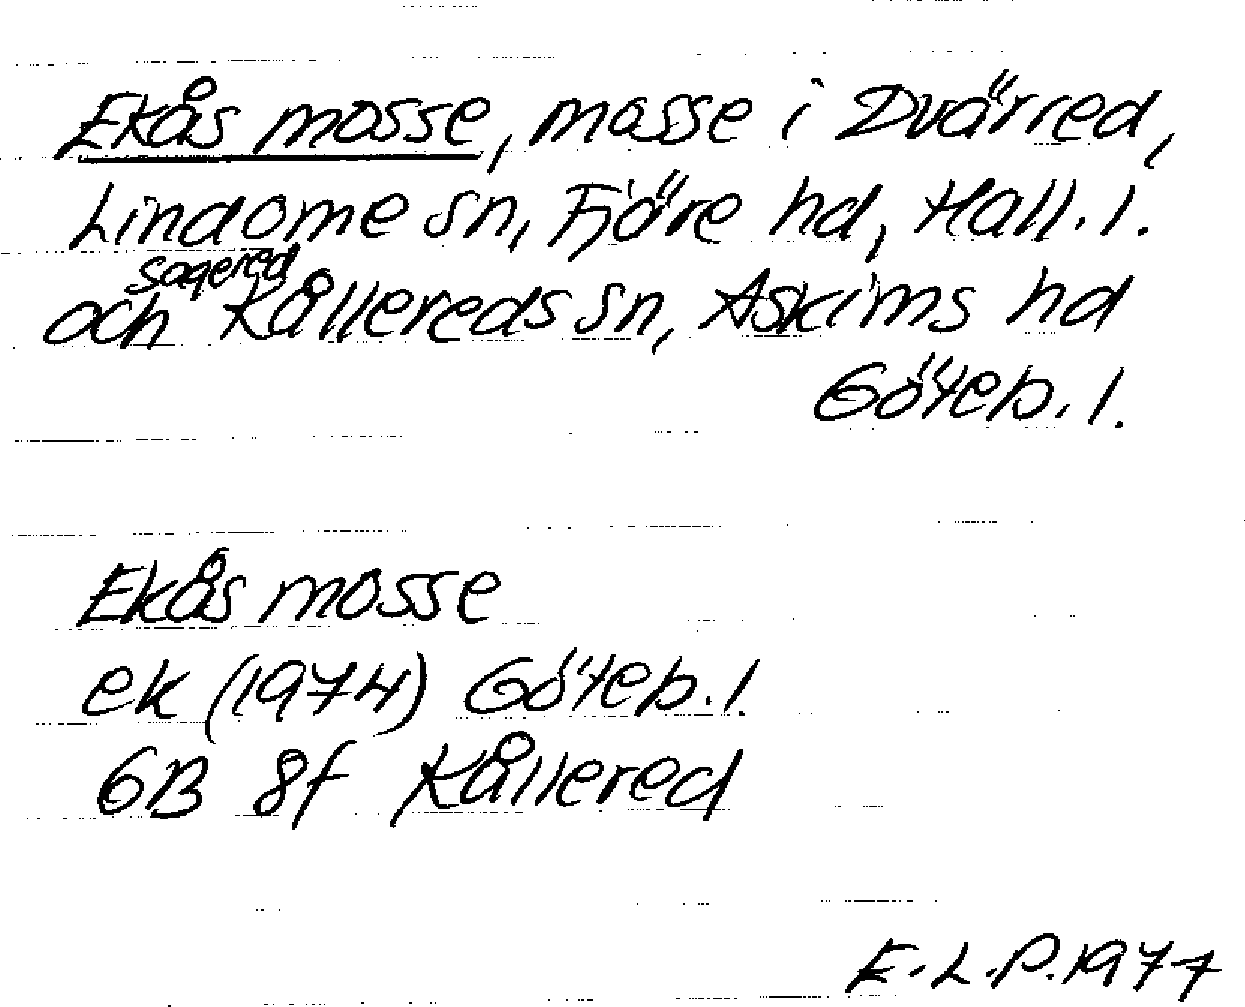 Ekås mosse, mosse i Dvärred,
Lindome sn, Fjöre hd, Hall. l.
sagered
och Kållereds sn, Askims hd
Göteb. l.
Ekås mosse
ek (1974) Göteb. l.
6B 8f Kållered
E.L.P. 1977